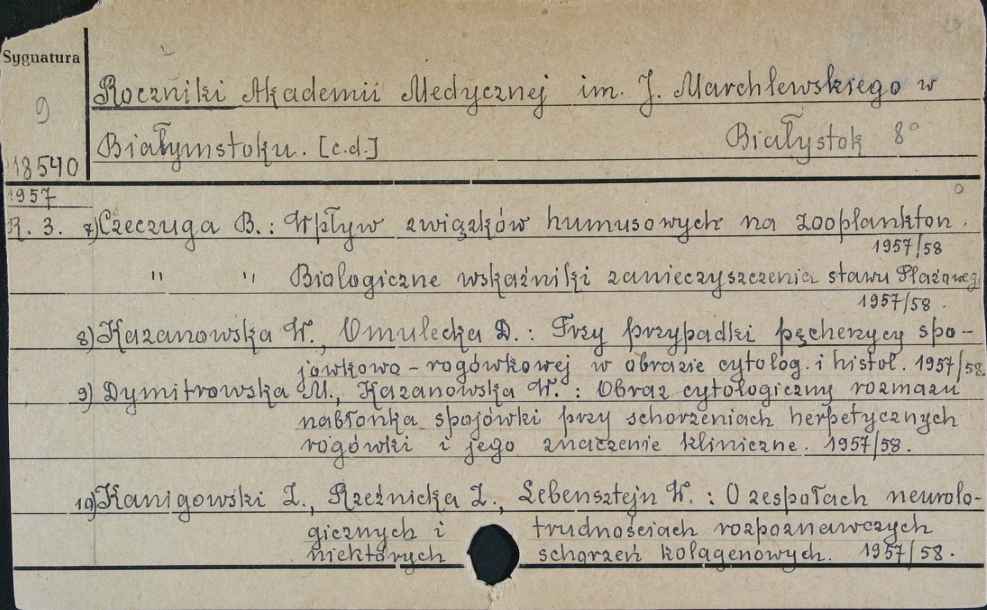 Sygnatura
9
18540
Roczniki Akademii Medycznej im. J. Marchlewskiego w
Białymstoku. [c.d.] Białystok 8°
1957
R. 3. 7) Czeczuga B.: Wpływ związków humusowych na zooplankton.
1957/58
" " Biologiczne wskaźniki zanieczyszczenia stawu Plażoweg
1957/58.
8) Kazanowska W., Omulecka D.: Trzy przypadki pęcherzycy spo-
jówkowo-rogówkowej w obrazie cytolog. i histol. 1957/58.
9) Dymitrowska M., Kazanowska W.: Obraz cytologiczny rozmazu
nabłonka spojówki przy schorzeniach herpetycznych
rogówki i jego znaczenie kliniczne. 1957/58.
10) Kanigowski Z., Rzeźnicka Z., Lebensztejn W.: O zespołach neurolo-
gicznych i trudnościach rozpoznawczych
niektórych schorzeń kolagenowych. 1957/58.